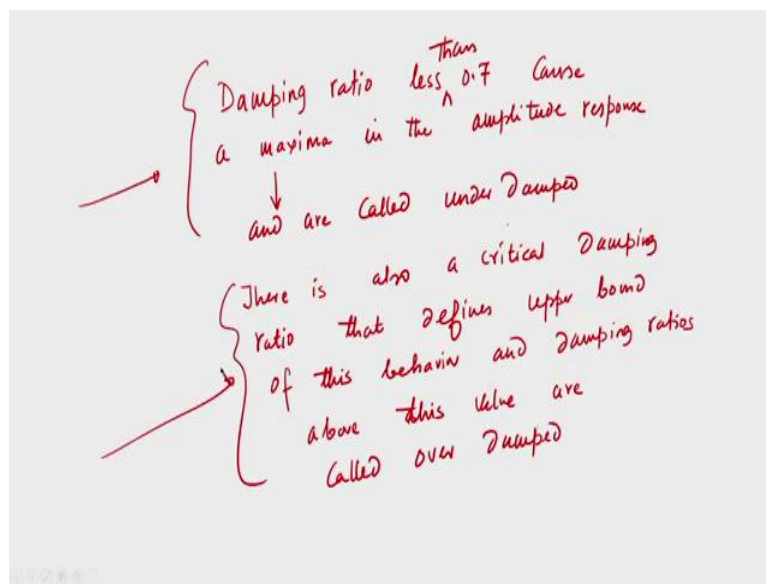 Damping ratio less than 0.7 cause
a maxima in the amplitude response
and are called under damped
There is also a critical Damping
ratio that defines upper bound
of this behavior and damping ratios
above this value are
called over damped